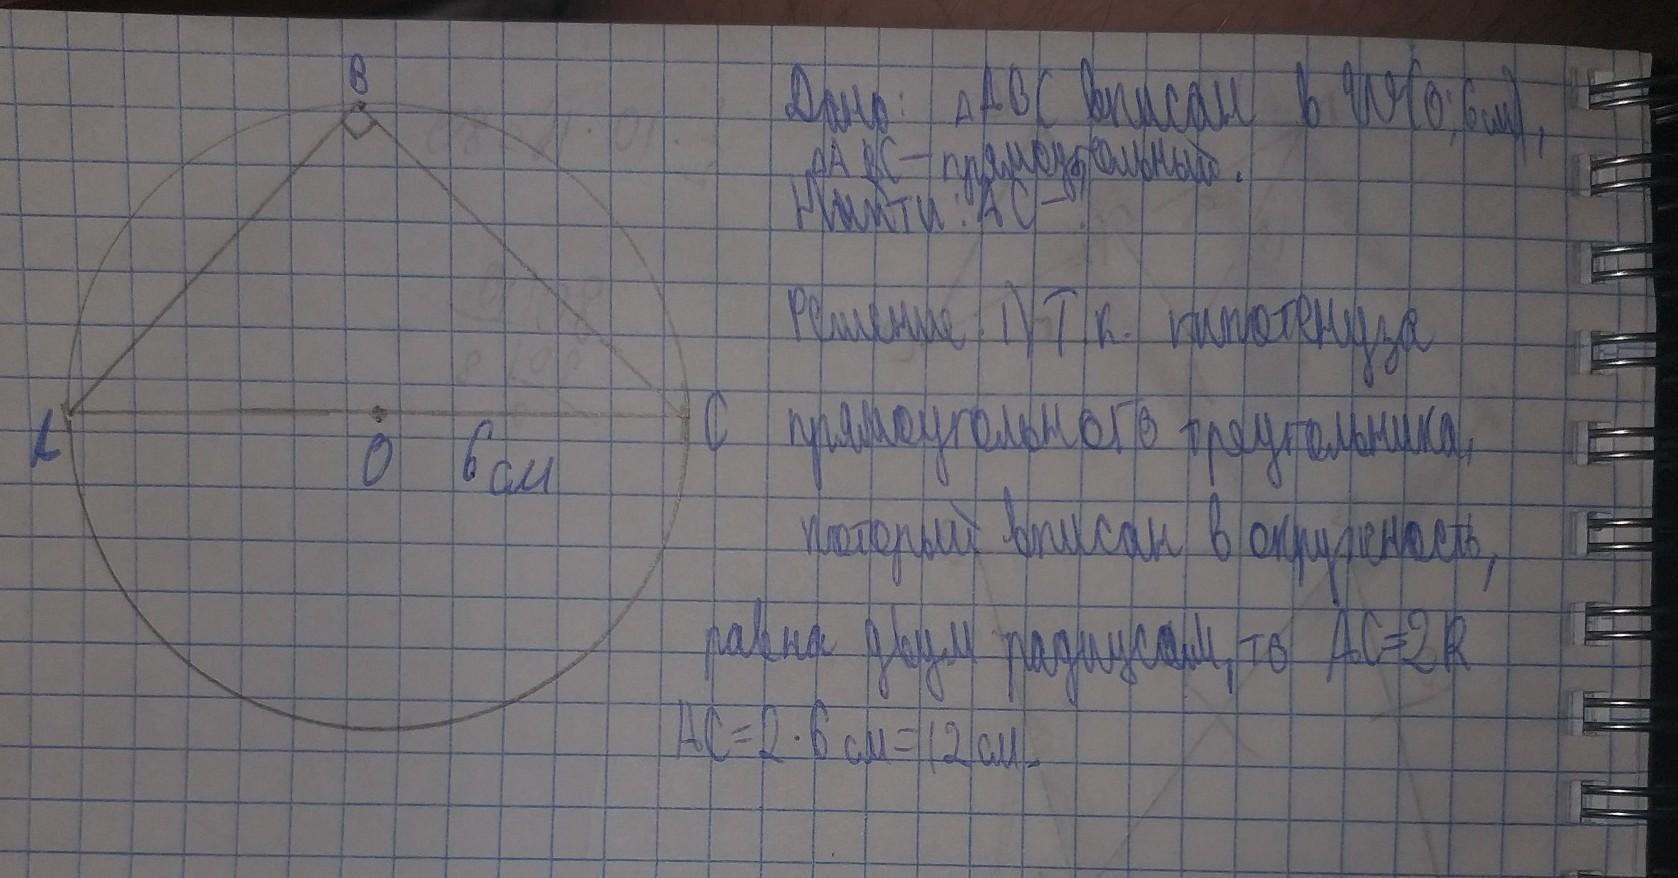 B
A
O
6 см
C
Дано: △ABC вписан в (O; 6 см),
△ABC - прямоугольный.
Найти: AC -
Решение 1) Т к. гипотенуза
прямоугольного треугольника,
который вписан в окружность,
равна двум радиусам, то AC=2R
AC=2·6 см=12 см.